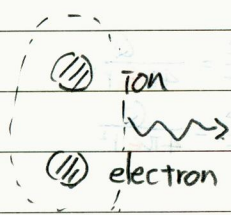 ion
electron